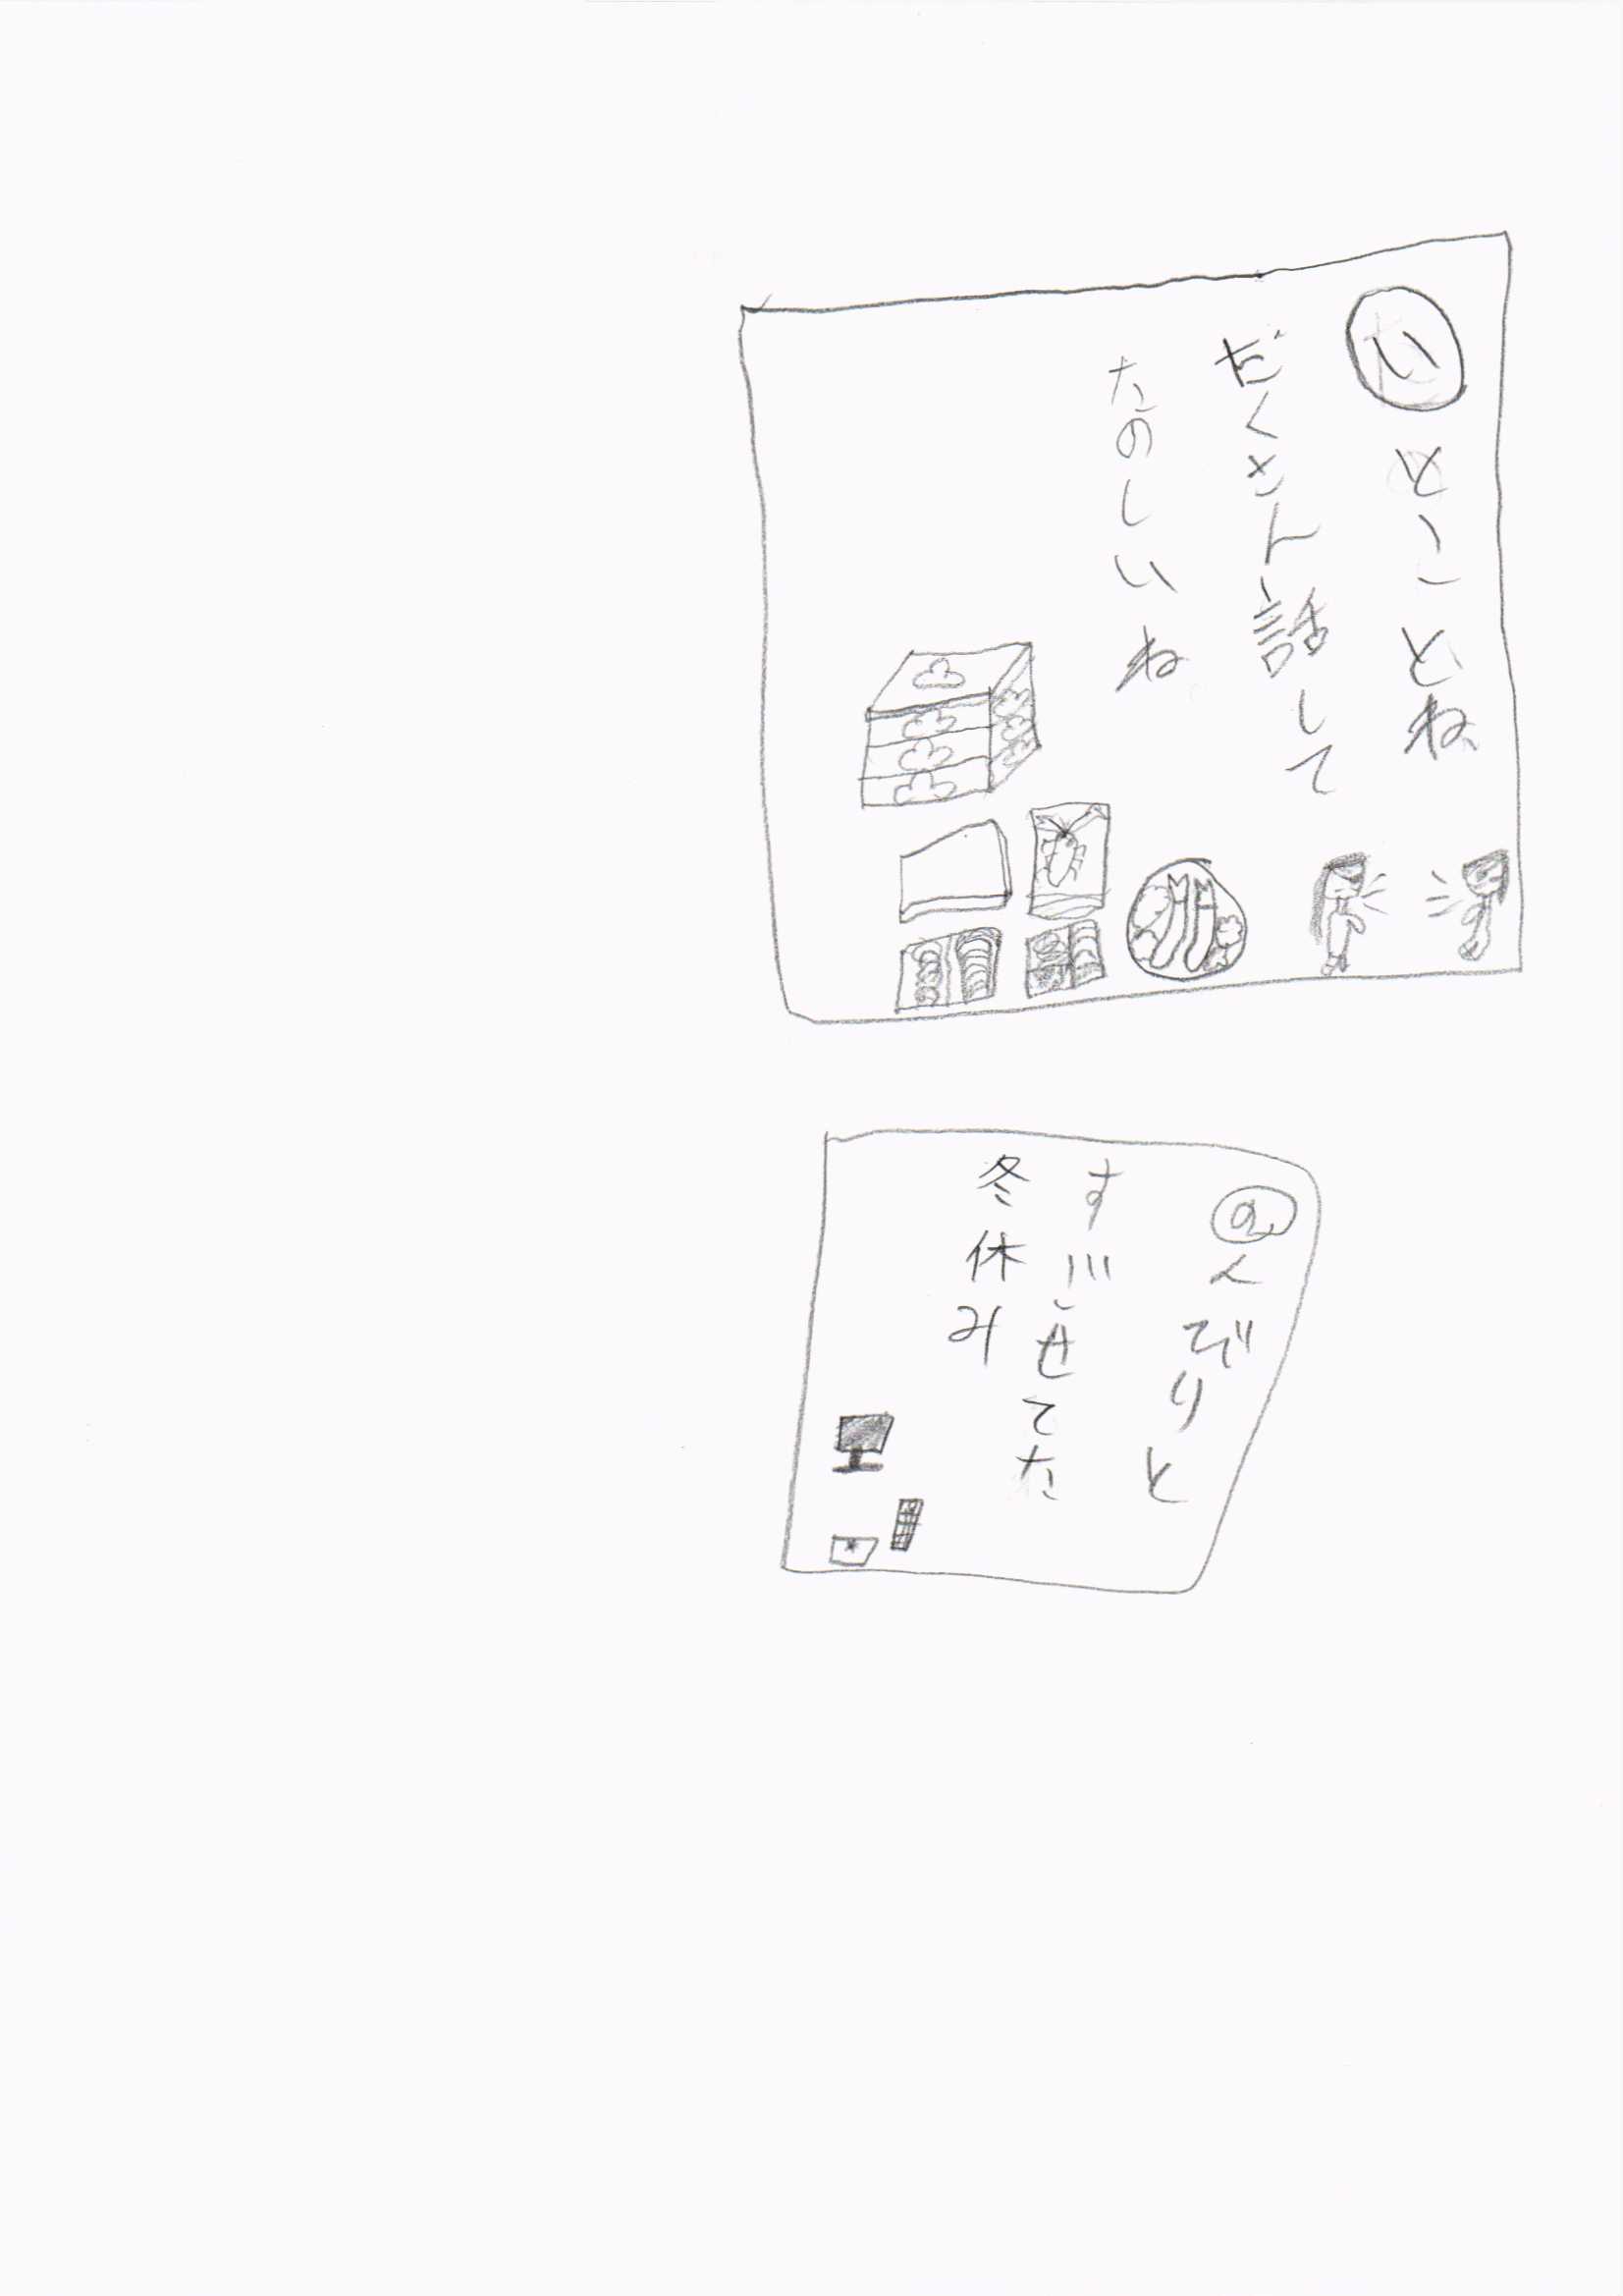 いとことね
だくさん話して
たのしいね
のんびりと
すごせてた
冬休み